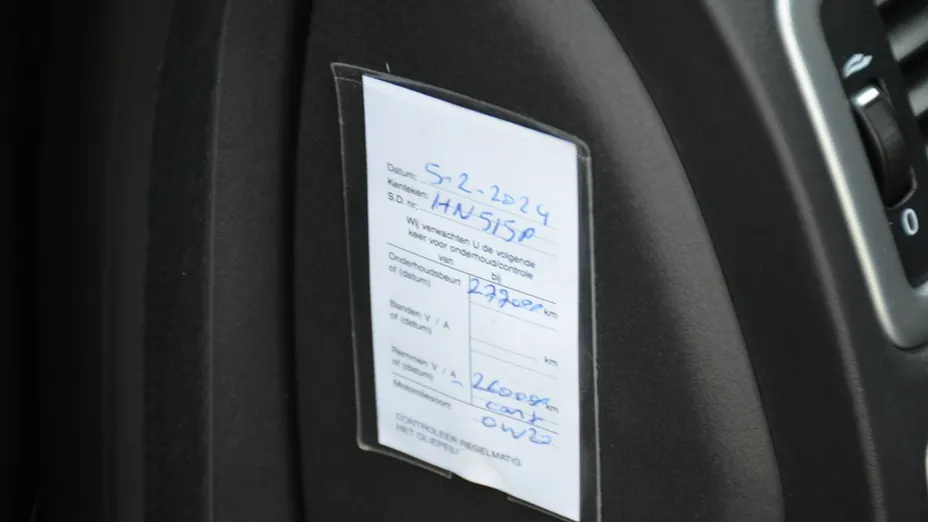 Datum: 5-2-2024
Kenteken: HN515P
S.D. nr.:
Wij verwachten U de volgende
keer voor onderhoud/controle
van bij
Onderhoudsbeurt 277000 km
of (datum)
Banden V / A km
of (datum)
Remmen V / A 260000 km
of (datum)
Motoroliesoort
0W20
CONTROLEER REGELMATIG
HET OLIEPEIL!
0